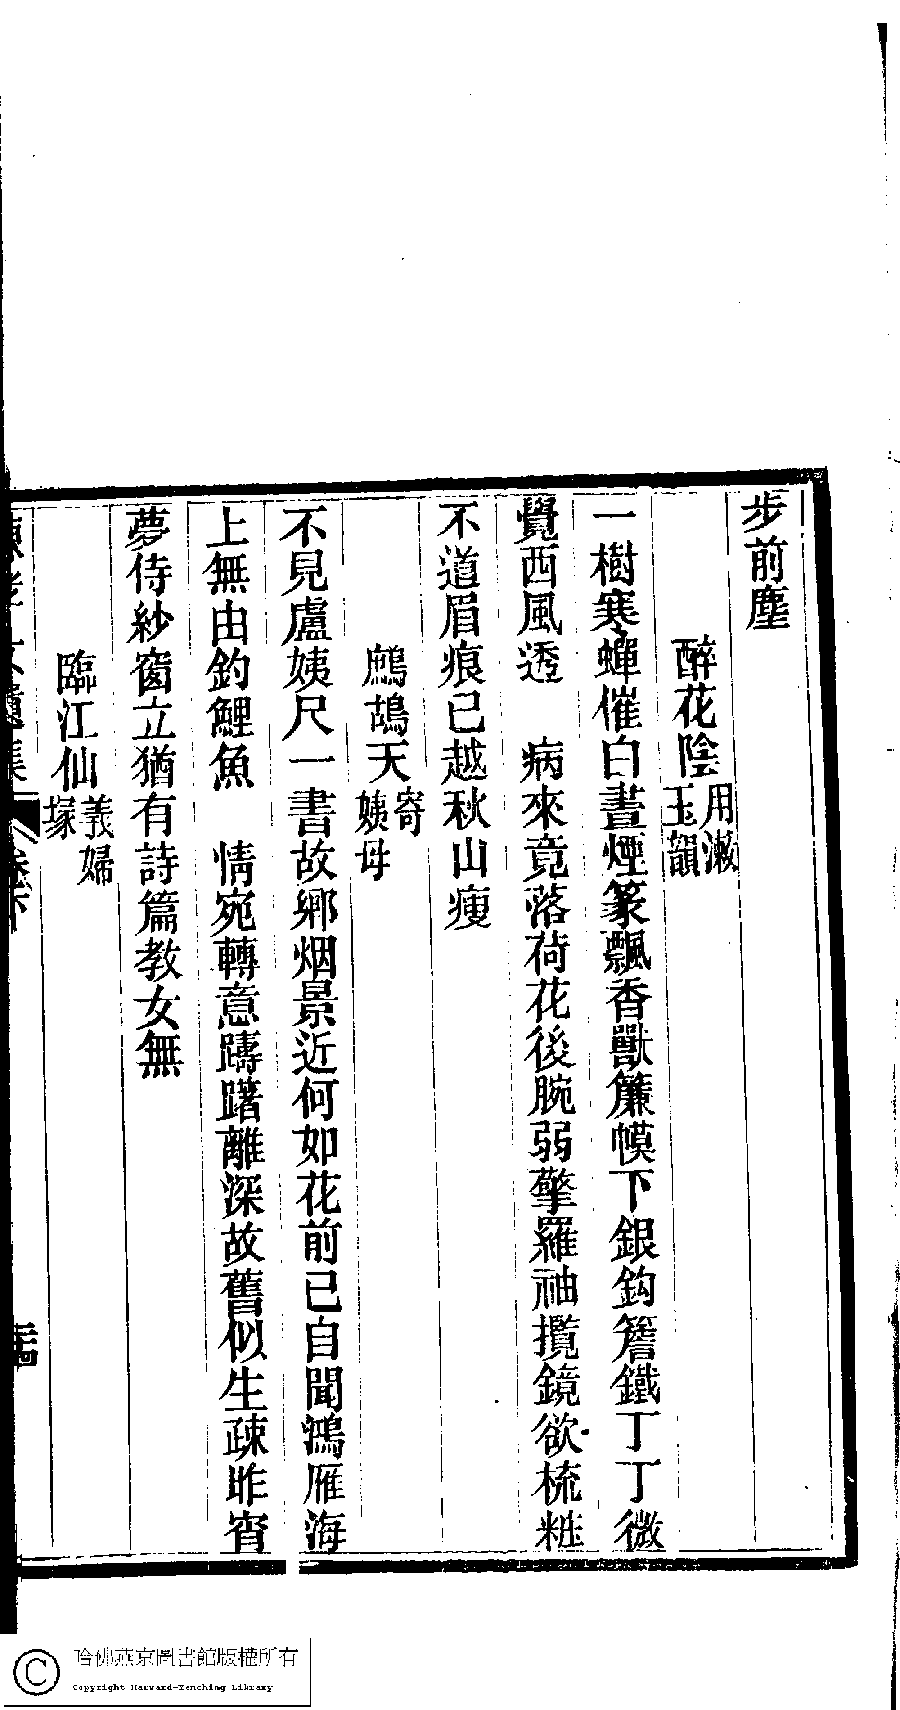 步前塵
醉花陰用漱玉韻
一樹寒蟬催白晝煙篆飄香獸簾幙下銀鈎簷鐵丁丁微
覺西風透　病來竟落荷花後腕弱擎羅袖攬鏡欲梳粧
不道眉痕已越秋山瘦
鷓鴣天寄姨母
不見盧姨尺一書故鄉烟景近何如花前已自聞鴻雁海
上無由釣鯉魚　情宛轉意躊躇離深故舊似生疎昨宵
夢侍紗窗立猶有詩篇教女無
臨江仙義婦塚
卷下
哈佛燕京圖書館版權所有
Copyright Harvard-Yenching Library